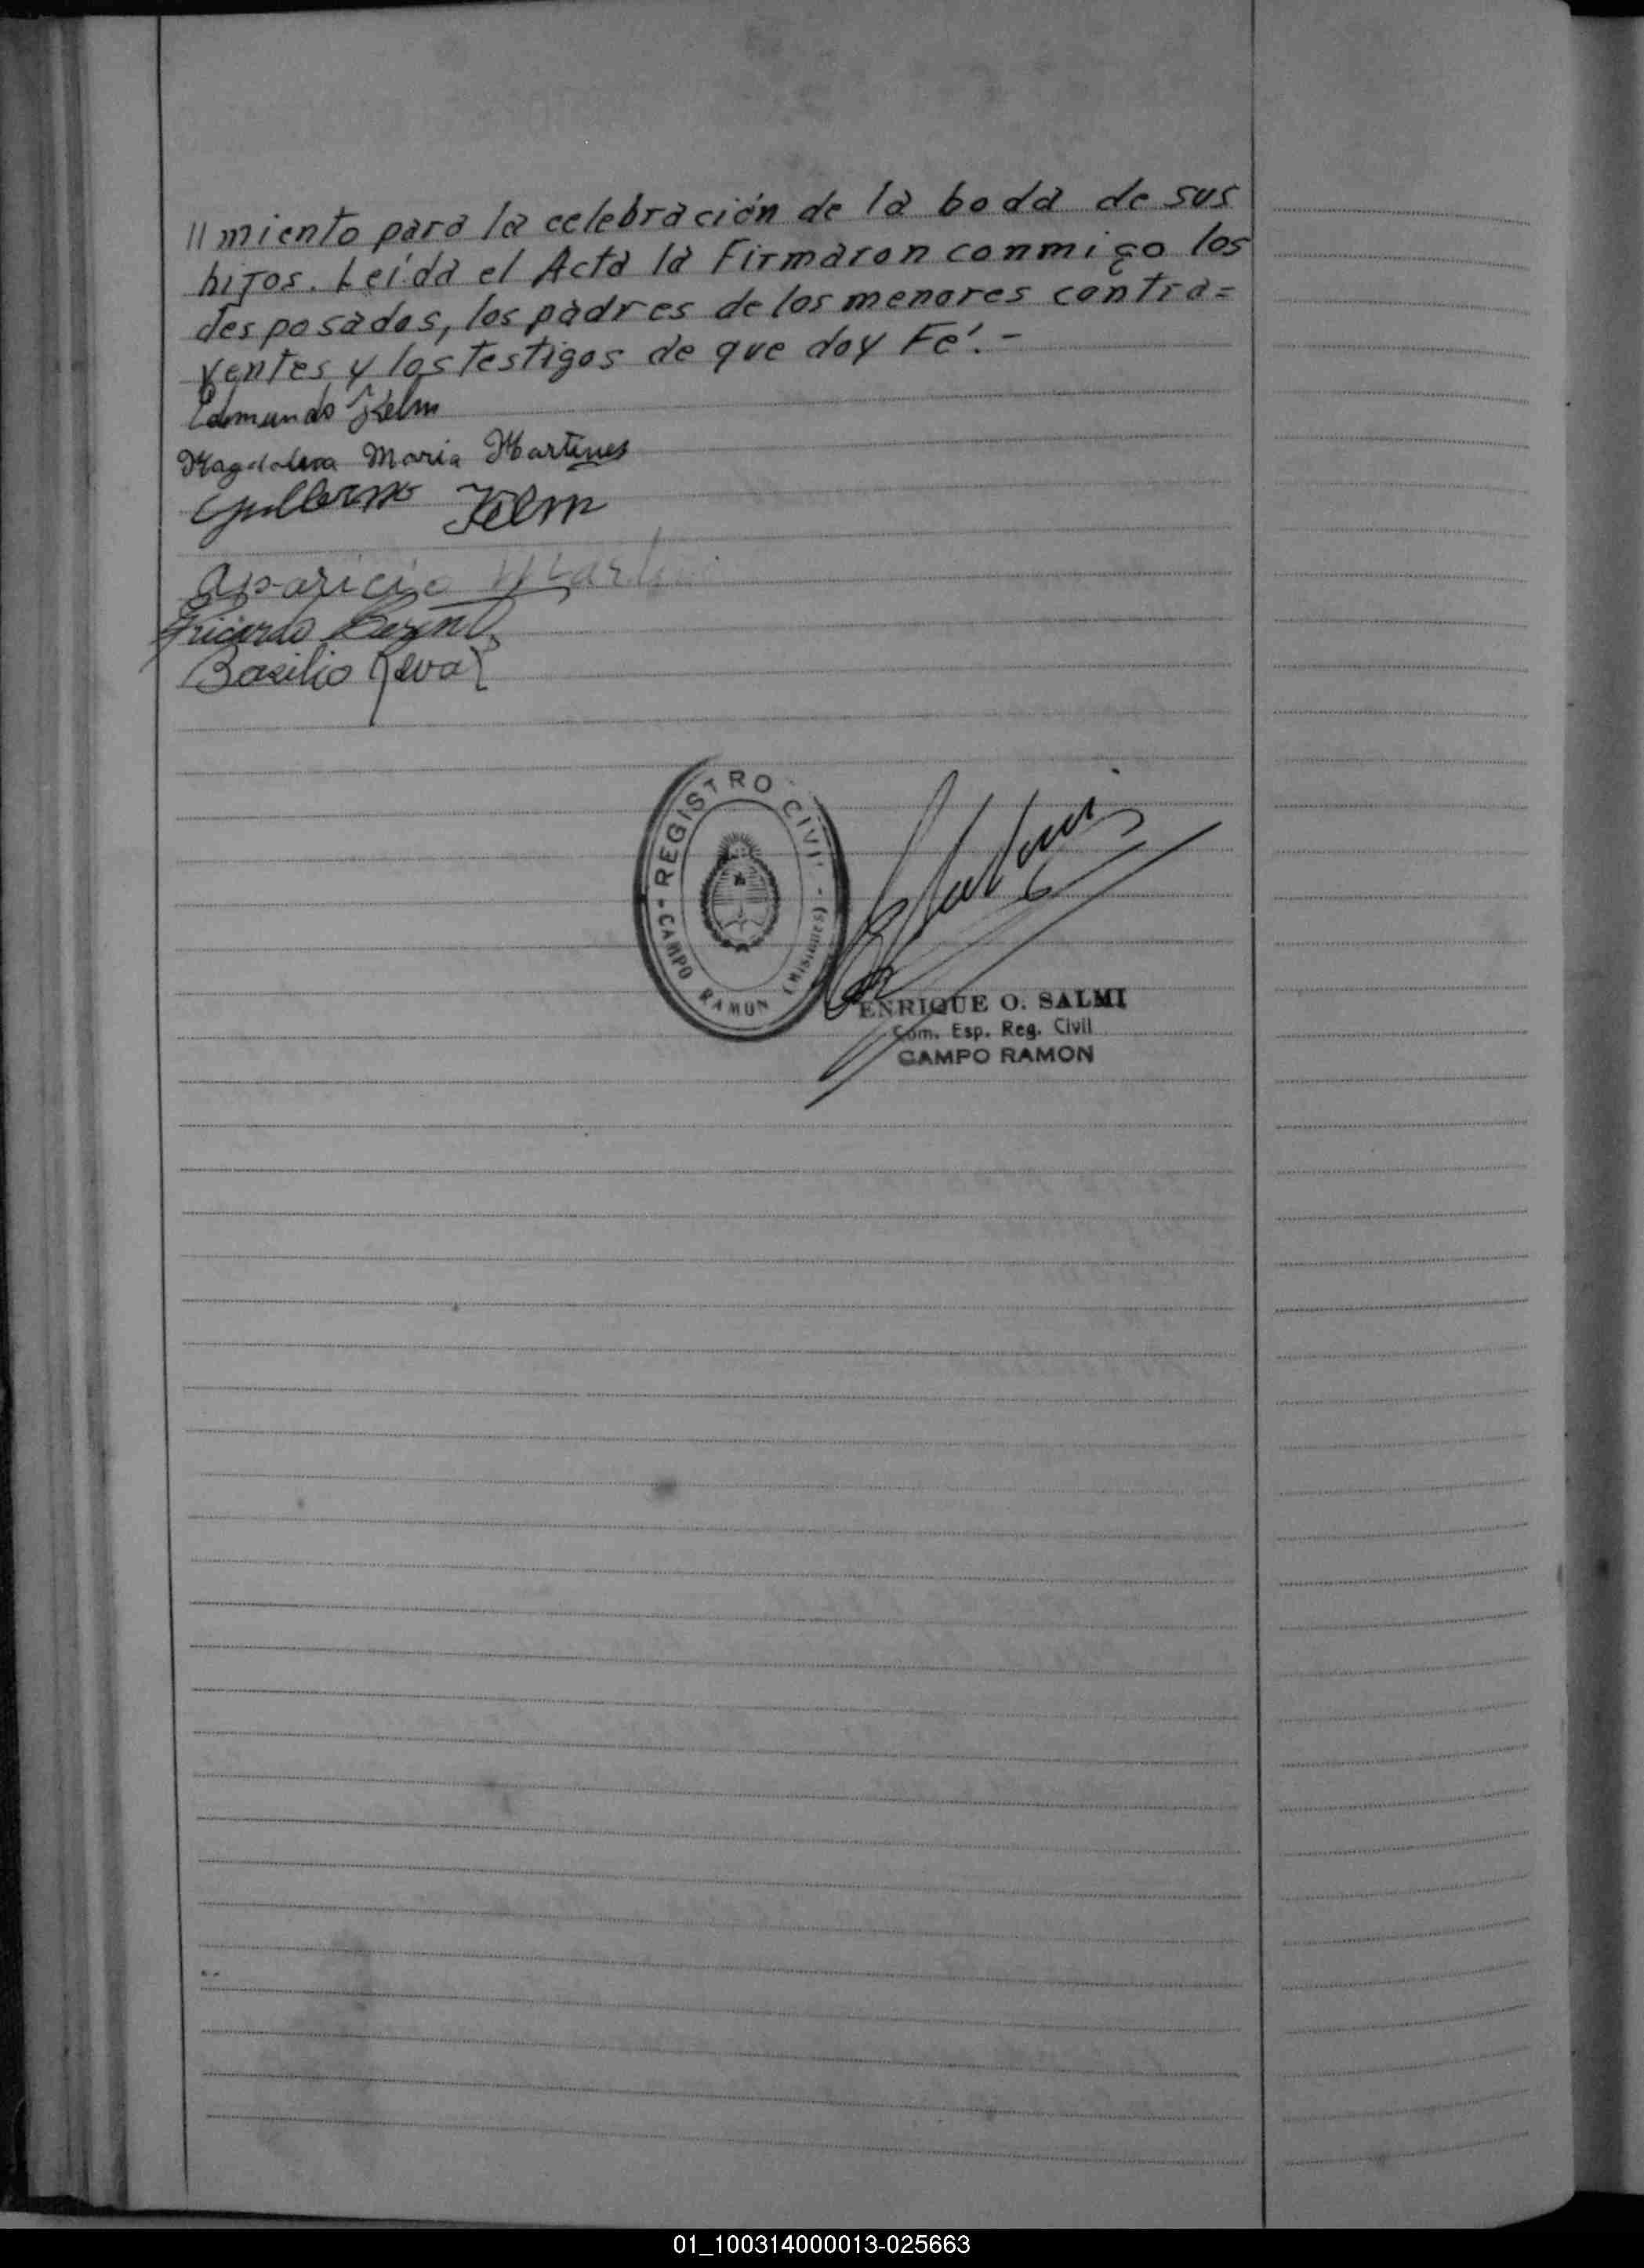 //miento para la celebración de la boda de sus
hijos. Leída el Acta la Firmaron conmigo los
desposados, los padres de los menores contra=
yentes y los testigos de que doy Fé.-
Edmundo Kelm
Magdalena Maria Martines
Guillermo Kelm
Aparicio
Ricardo
Basilio
REGISTRO CIVIL
- CAMPO RAMON (Misiones) -
ENRIQUE O. SALMI
Com. Esp. Reg. Civil
CAMPO RAMON
01_100314000013-025663